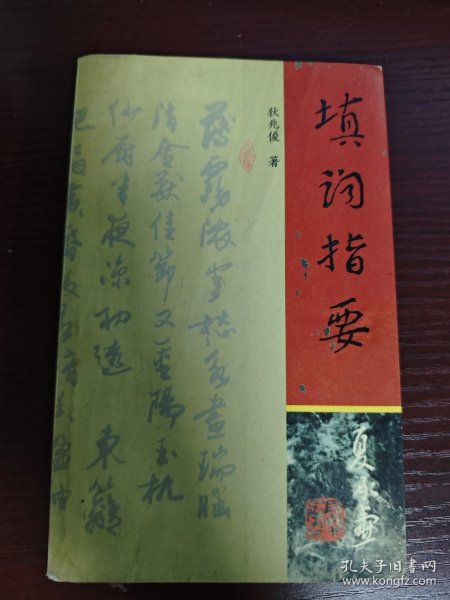 填词指要
狄兆俊 著
薄雾浓云愁永昼瑞脑
消金兽佳节又重阳玉枕
纱厨半夜凉初透 东篱
把酒黄昏后有暗香盈袖
夏承焘
孔夫子旧书网
www.kongfz.com